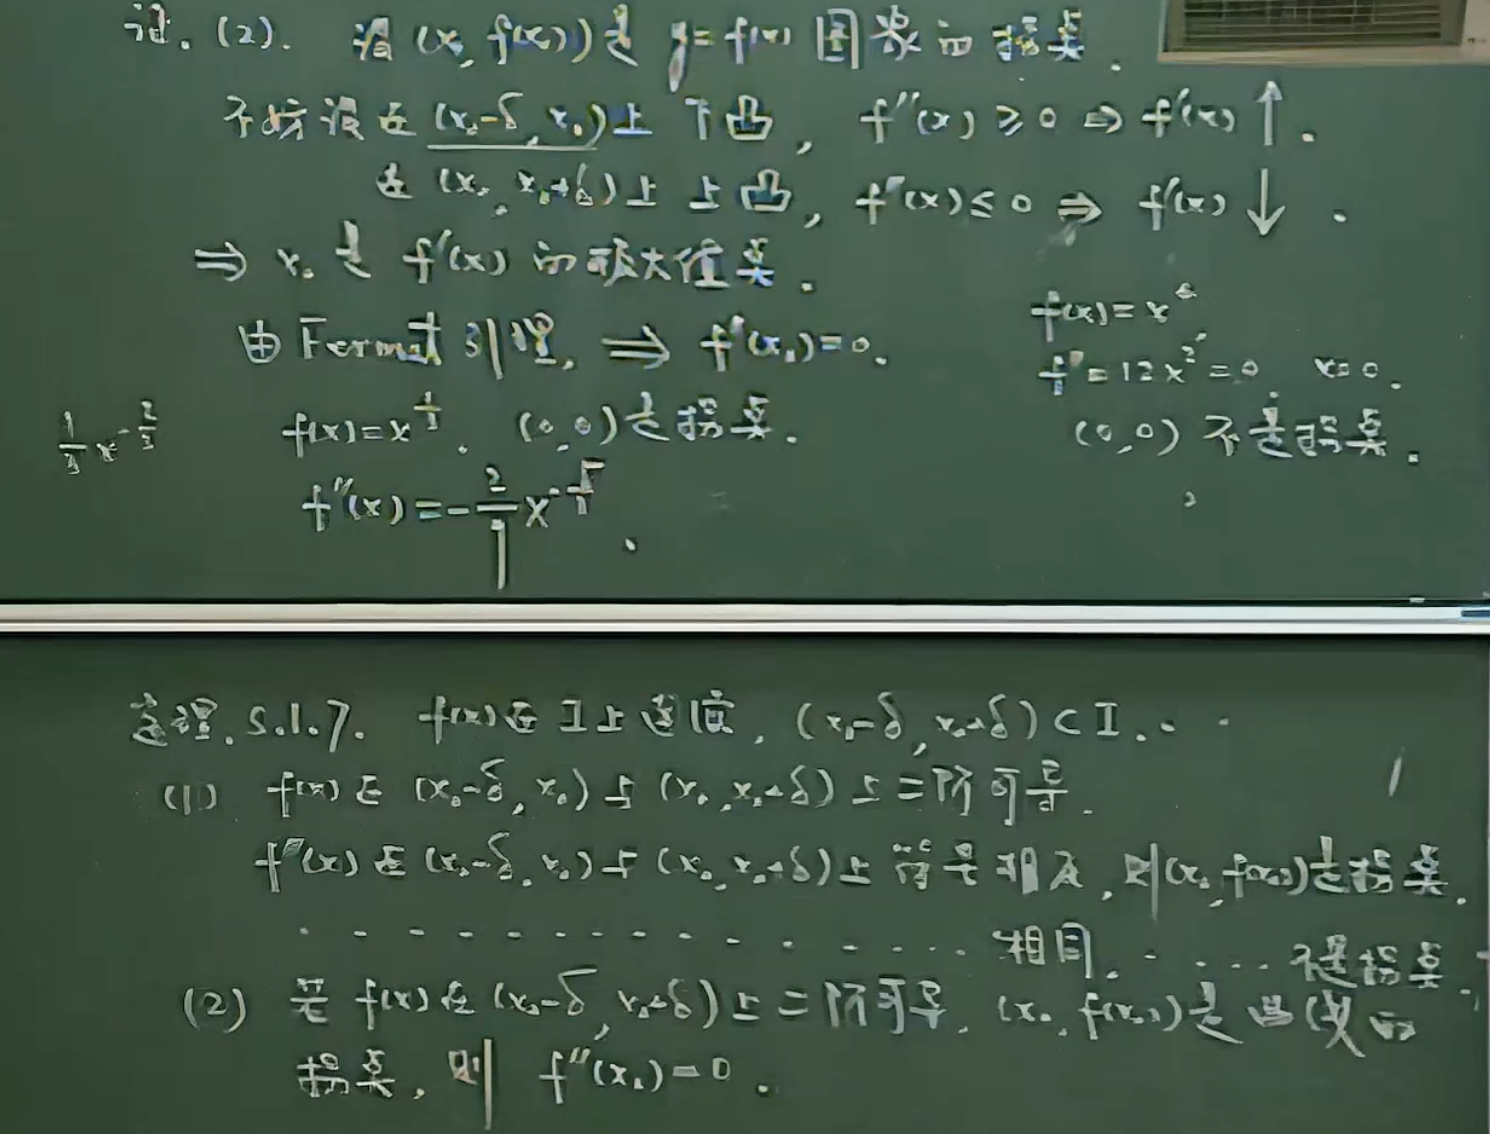 证. (2). 设 (x₀, f(x₀)) 是 y = f(x) 图象的拐点.
不妨设在 (x₀-δ, x₀) 上 下凸, f''(x) ≥ 0 ⇒ f'(x) ↑.
在 (x₀, x₀+δ) 上 上凸, f''(x) ≤ 0 ⇒ f'(x) ↓.
⇒ x₀ 是 f'(x) 的极大值点.
由 Fermat 引理, ⇒ f''(x₀) = 0.
f(x) = x^{1/3}. (0,0) 是拐点.
1/3 x^{-2/3}
f''(x) = -2/
f(x) = x⁴
f'' = 12x² = 0 x=0.
(0,0) 不是拐点.
定理. 5.1.7. f(x) 在 I 上连续, (x₀-δ, x₀+δ) ⊂ I.
(1) f(x) 在 (x₀-δ, x₀) 与 (x₀, x₀+δ) 上二阶可导.
f''(x) 在 (x₀-δ, x₀) 与 (x₀, x₀+δ) 上 符号相反, 则 (x₀, f(x₀)) 是拐点.
. . . . . . . . . . . . . . . 相同. . . . . 不是拐点.
(2) 若 f(x) 在 (x₀-δ, x₀+δ) 上二阶可导, (x₀, f(x₀)) 是曲线的
拐点, 则 f''(x₀) = 0.